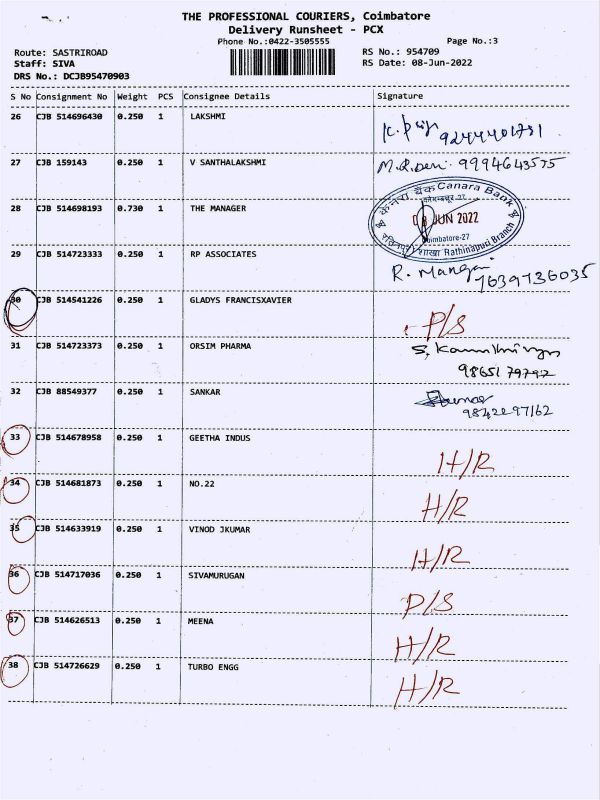 THE PROFESSIONAL COURIERS, Coimbatore
Delivery Runsheet - PCX
Phone No.:0422-3505555 Page No.:3
Route: SASTRIROAD RS No.: 954709
Staff: SIVA RS Date: 08-Jun-2022
DRS No.: DCJB95470903
S No Consignment No Weight PCS Consignee Details Signature
26 CJB 514696430 0.250 1 LAKSHMI
27 CJB 159143 0.250 1 V SANTHALAKSHMI 9994643575
28 CJB 514698193 0.730 1 THE MANAGER
केनरा बैंक Canara Bank
कोयम्बत्तूर-27
08 JUN 2022
Coimbatore-27
शाखा Rathinapuri Branch
29 CJB 514723333 0.250 1 RP ASSOCIATES R. Manga
7639736035
30 CJB 514541226 0.250 1 GLADYS FRANCISXAVIER P/S
31 CJB 514723373 0.250 1 ORSIM PHARMA
9865179792
32 CJB 88549377 0.250 1 SANKAR
9842297162
33 CJB 514678958 0.250 1 GEETHA INDUS H/R
34 CJB 514681873 0.250 1 NO.22 H/R
35 CJB 514633919 0.250 1 VINOD JKUMAR H/R
36 CJB 514717036 0.250 1 SIVAMURUGAN P/S
37 CJB 514626513 0.250 1 MEENA H/R
38 CJB 514726629 0.250 1 TURBO ENGG H/R